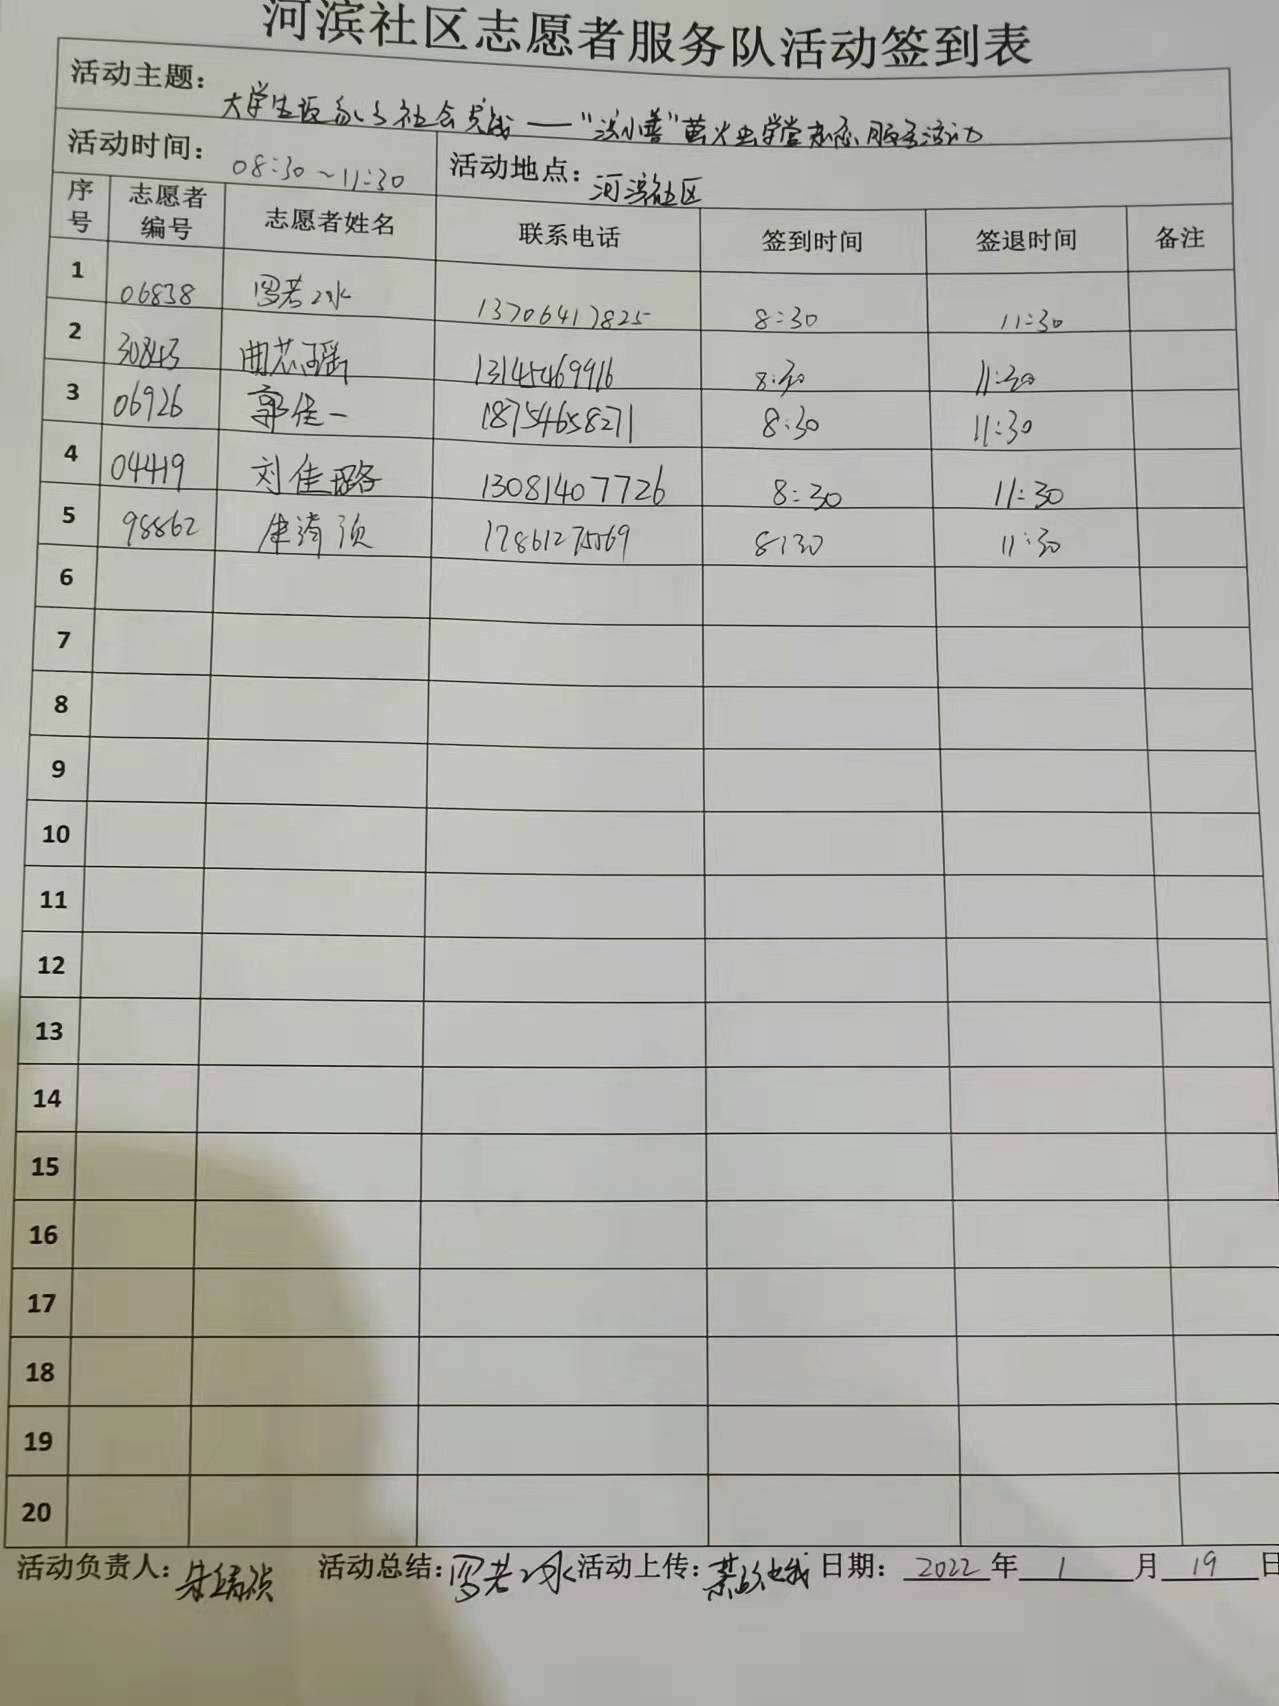 河滨社区志愿者服务队活动签到表
活动主题： 大学生返乡 社会实践——“ 小善”萤火虫学堂志愿服务活动
活动时间： 08:30～11:30 活动地点： 河滨社区
序号 志愿者编号 志愿者姓名 联系电话 签到时间 签退时间 备注
1 06838 罗若冰 13706417825 8:30 11:30
2 30843 曲芯瑶 13145469916 8:30 11:30
3 06926 郭佳一 18754658271 8:30 11:30
4 04419 刘佳璐 13081407726 8:30 11:30
5 98862 17861275069 8:30 11:30
6
7
8
9
10
11
12
13
14
15
16
17
18
19
20
活动负责人： 活动总结： 罗若冰 活动上传： 日期： 2022 年 1 月 19 日